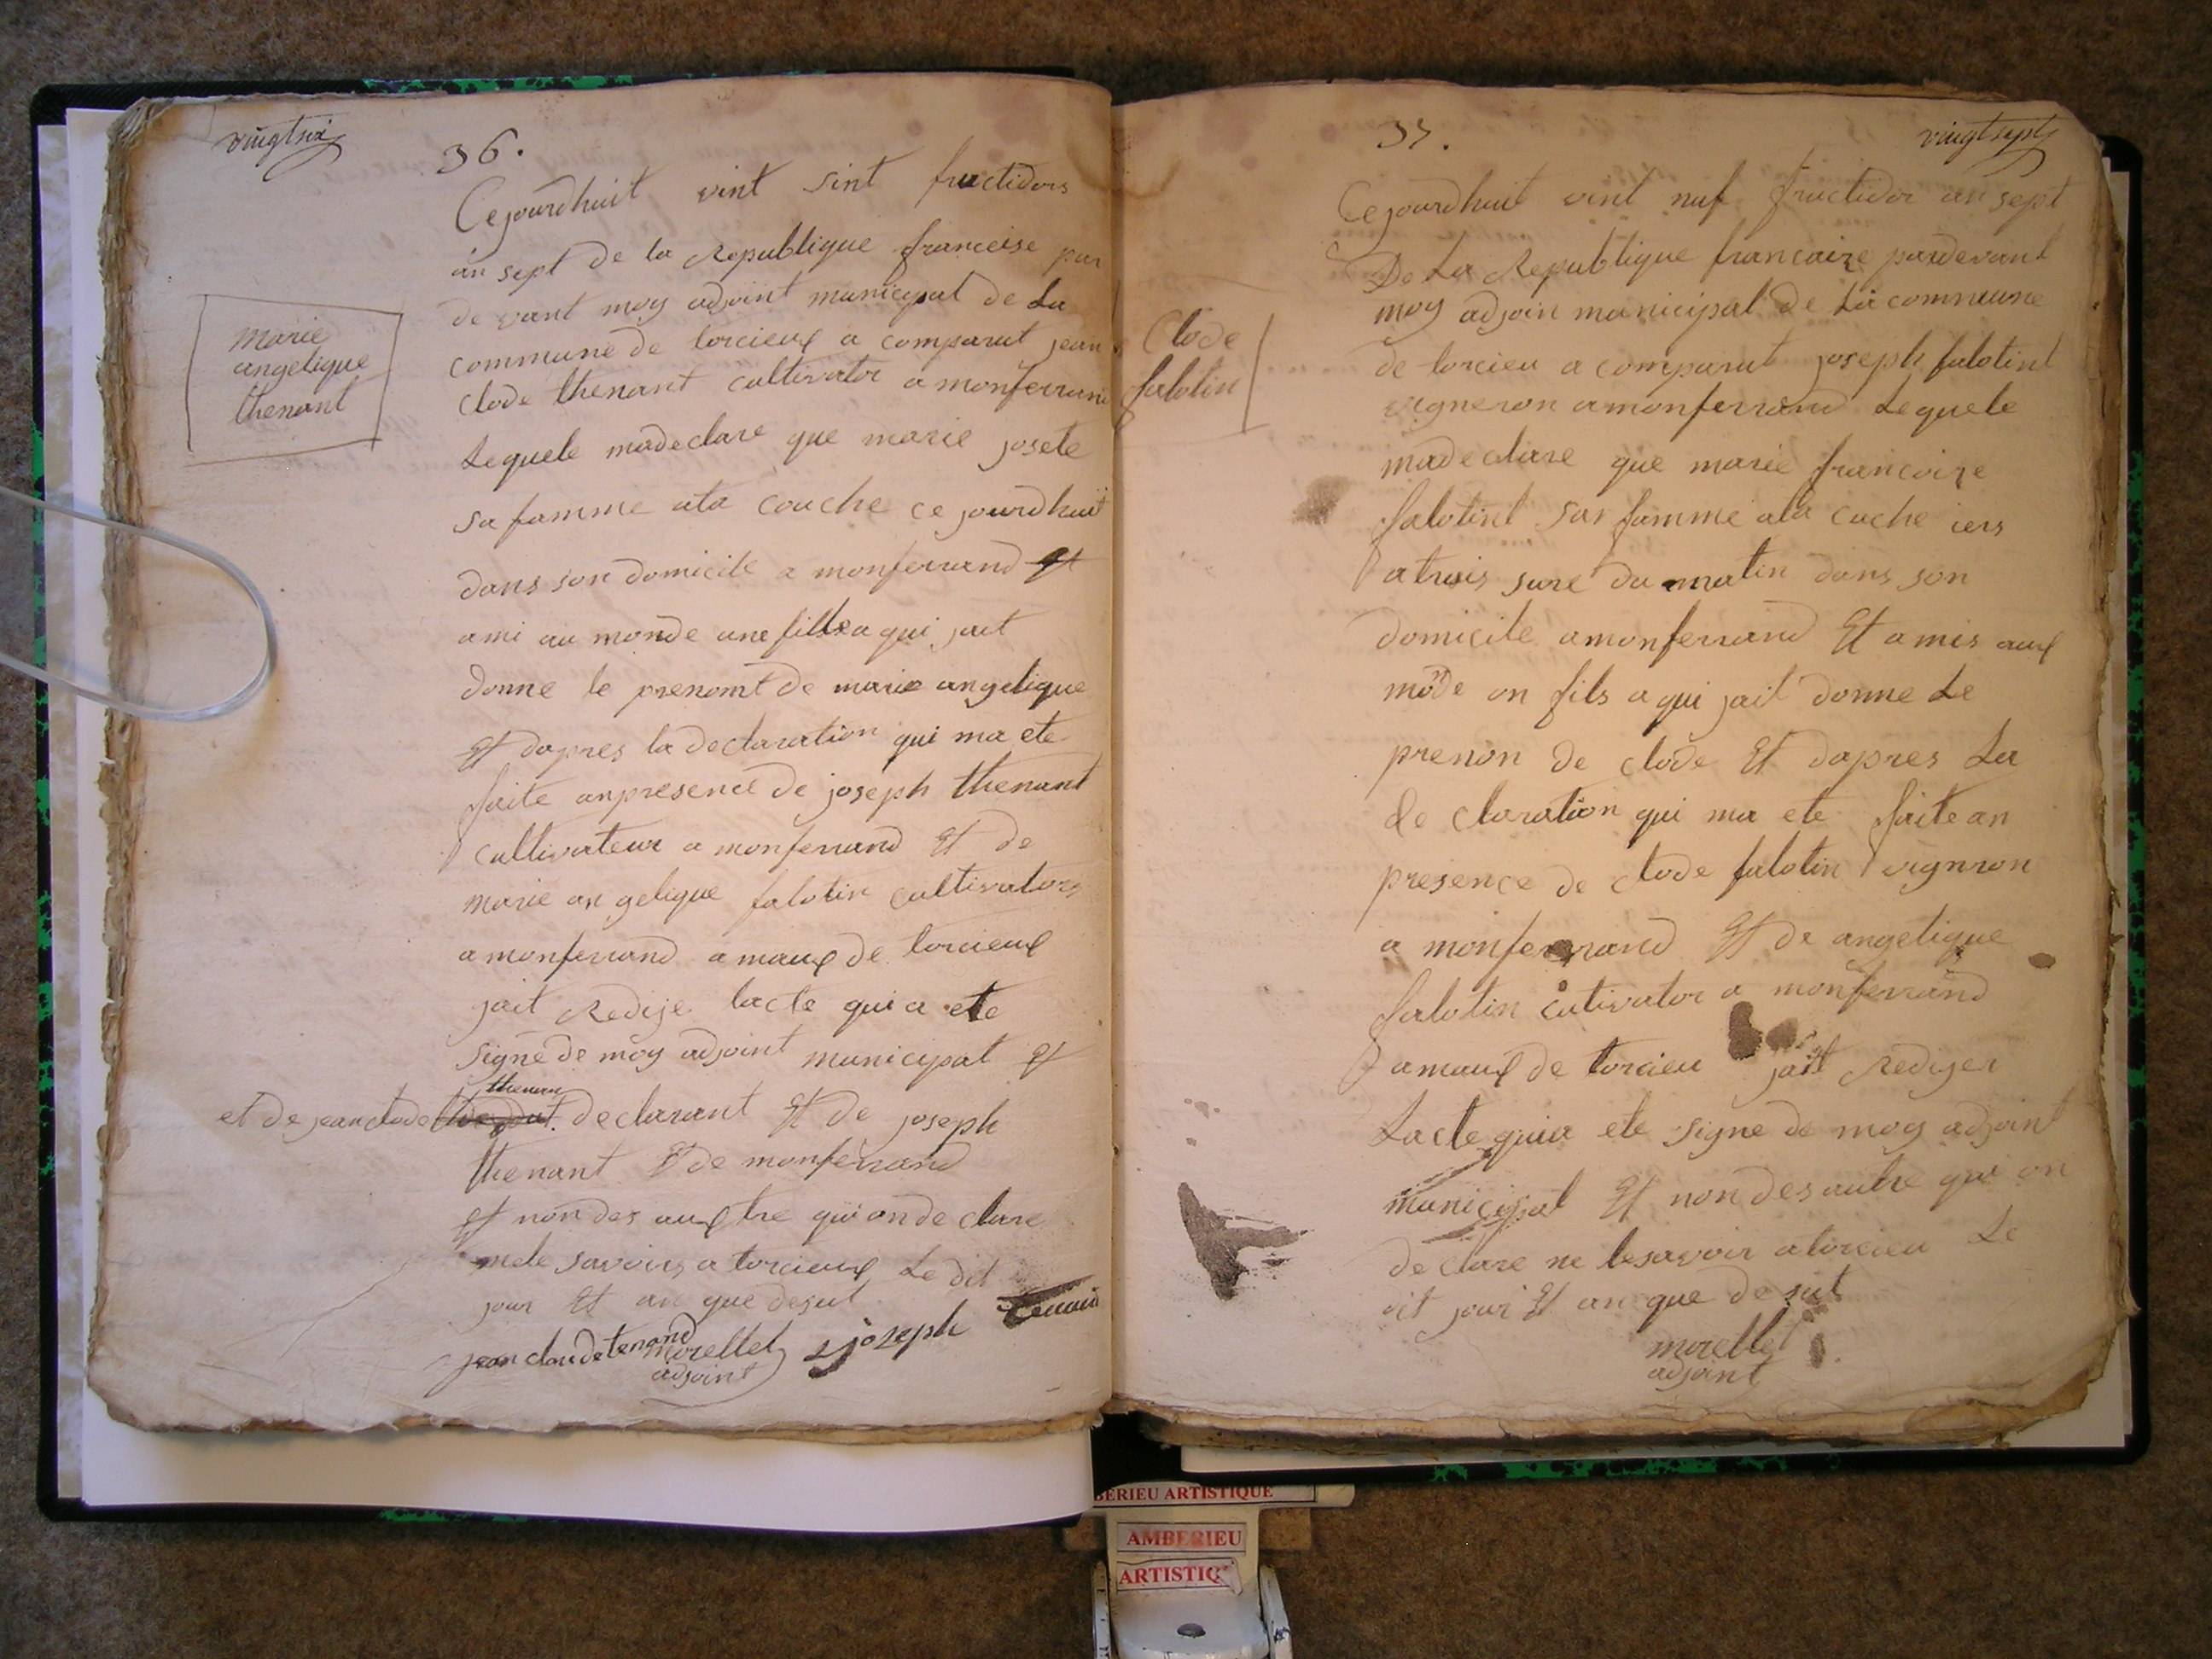 vingt six
36.
Cejourdhuit vint sint fructidors
an sept de la Republique franceise par
de vant moy adjoint municipal de La
commune de torcieux a comparut jean
clode thenant cultivator a monferrand
Lequele madeclare que marie josete
sa famme ata couche ce jourdhuit
dans son domicile a monferrand et
a mi au monde une fille a qui jait
donne le prenomt de marie angelique
Et dapres la declaration qui ma ete
faite anpresence de joseph thenant
cultivateur a monferrand Et de
marie angelique falotin cultivators
a monferrand a maux de torcieux
jait Redije lacte qui a ete
signe de moy adjoint municipal et
thenan
et de jean clode declarant Et de joseph
thenant Et de monferrand
Et non des auxtre qui on de clare
nele savoirs a torcieux Le dit
jour Et an que desut
jean claude tenand morellet joseph
adjoint
marie
angelique
thenant
37.
vingt sept
Cejourdhuit vint nuf fructidor an sept
De La Republique francaize pardevant
moy adjoin municipal de La commune
de torcieu a comparut joseph falotint
vigneron a monferrand Lequele
madeclare que marie francoize
falotint sar famme ata cuche iers
a trois sure du matin dans son
domicile a monferrand Et a mis aux
monde on fils a qui jait donne Le
prenon de clode Et dapres La
de claration qui ma ete faite an
presence de clode falotin vignron
a monferrand Et de angelique
falotin cutivator a monferrand
a maux de torcieu jait Rediger
Lacte quia ete signe de moy adjoint
municipal Et non des autre qui on
declare ne lesavoir a torcieu Le
dit jour Et an que de sut
morellet
adjoint
Clode
falotin
BERIEU ARTISTIQUE
AMBERIEU
ARTISTIQ